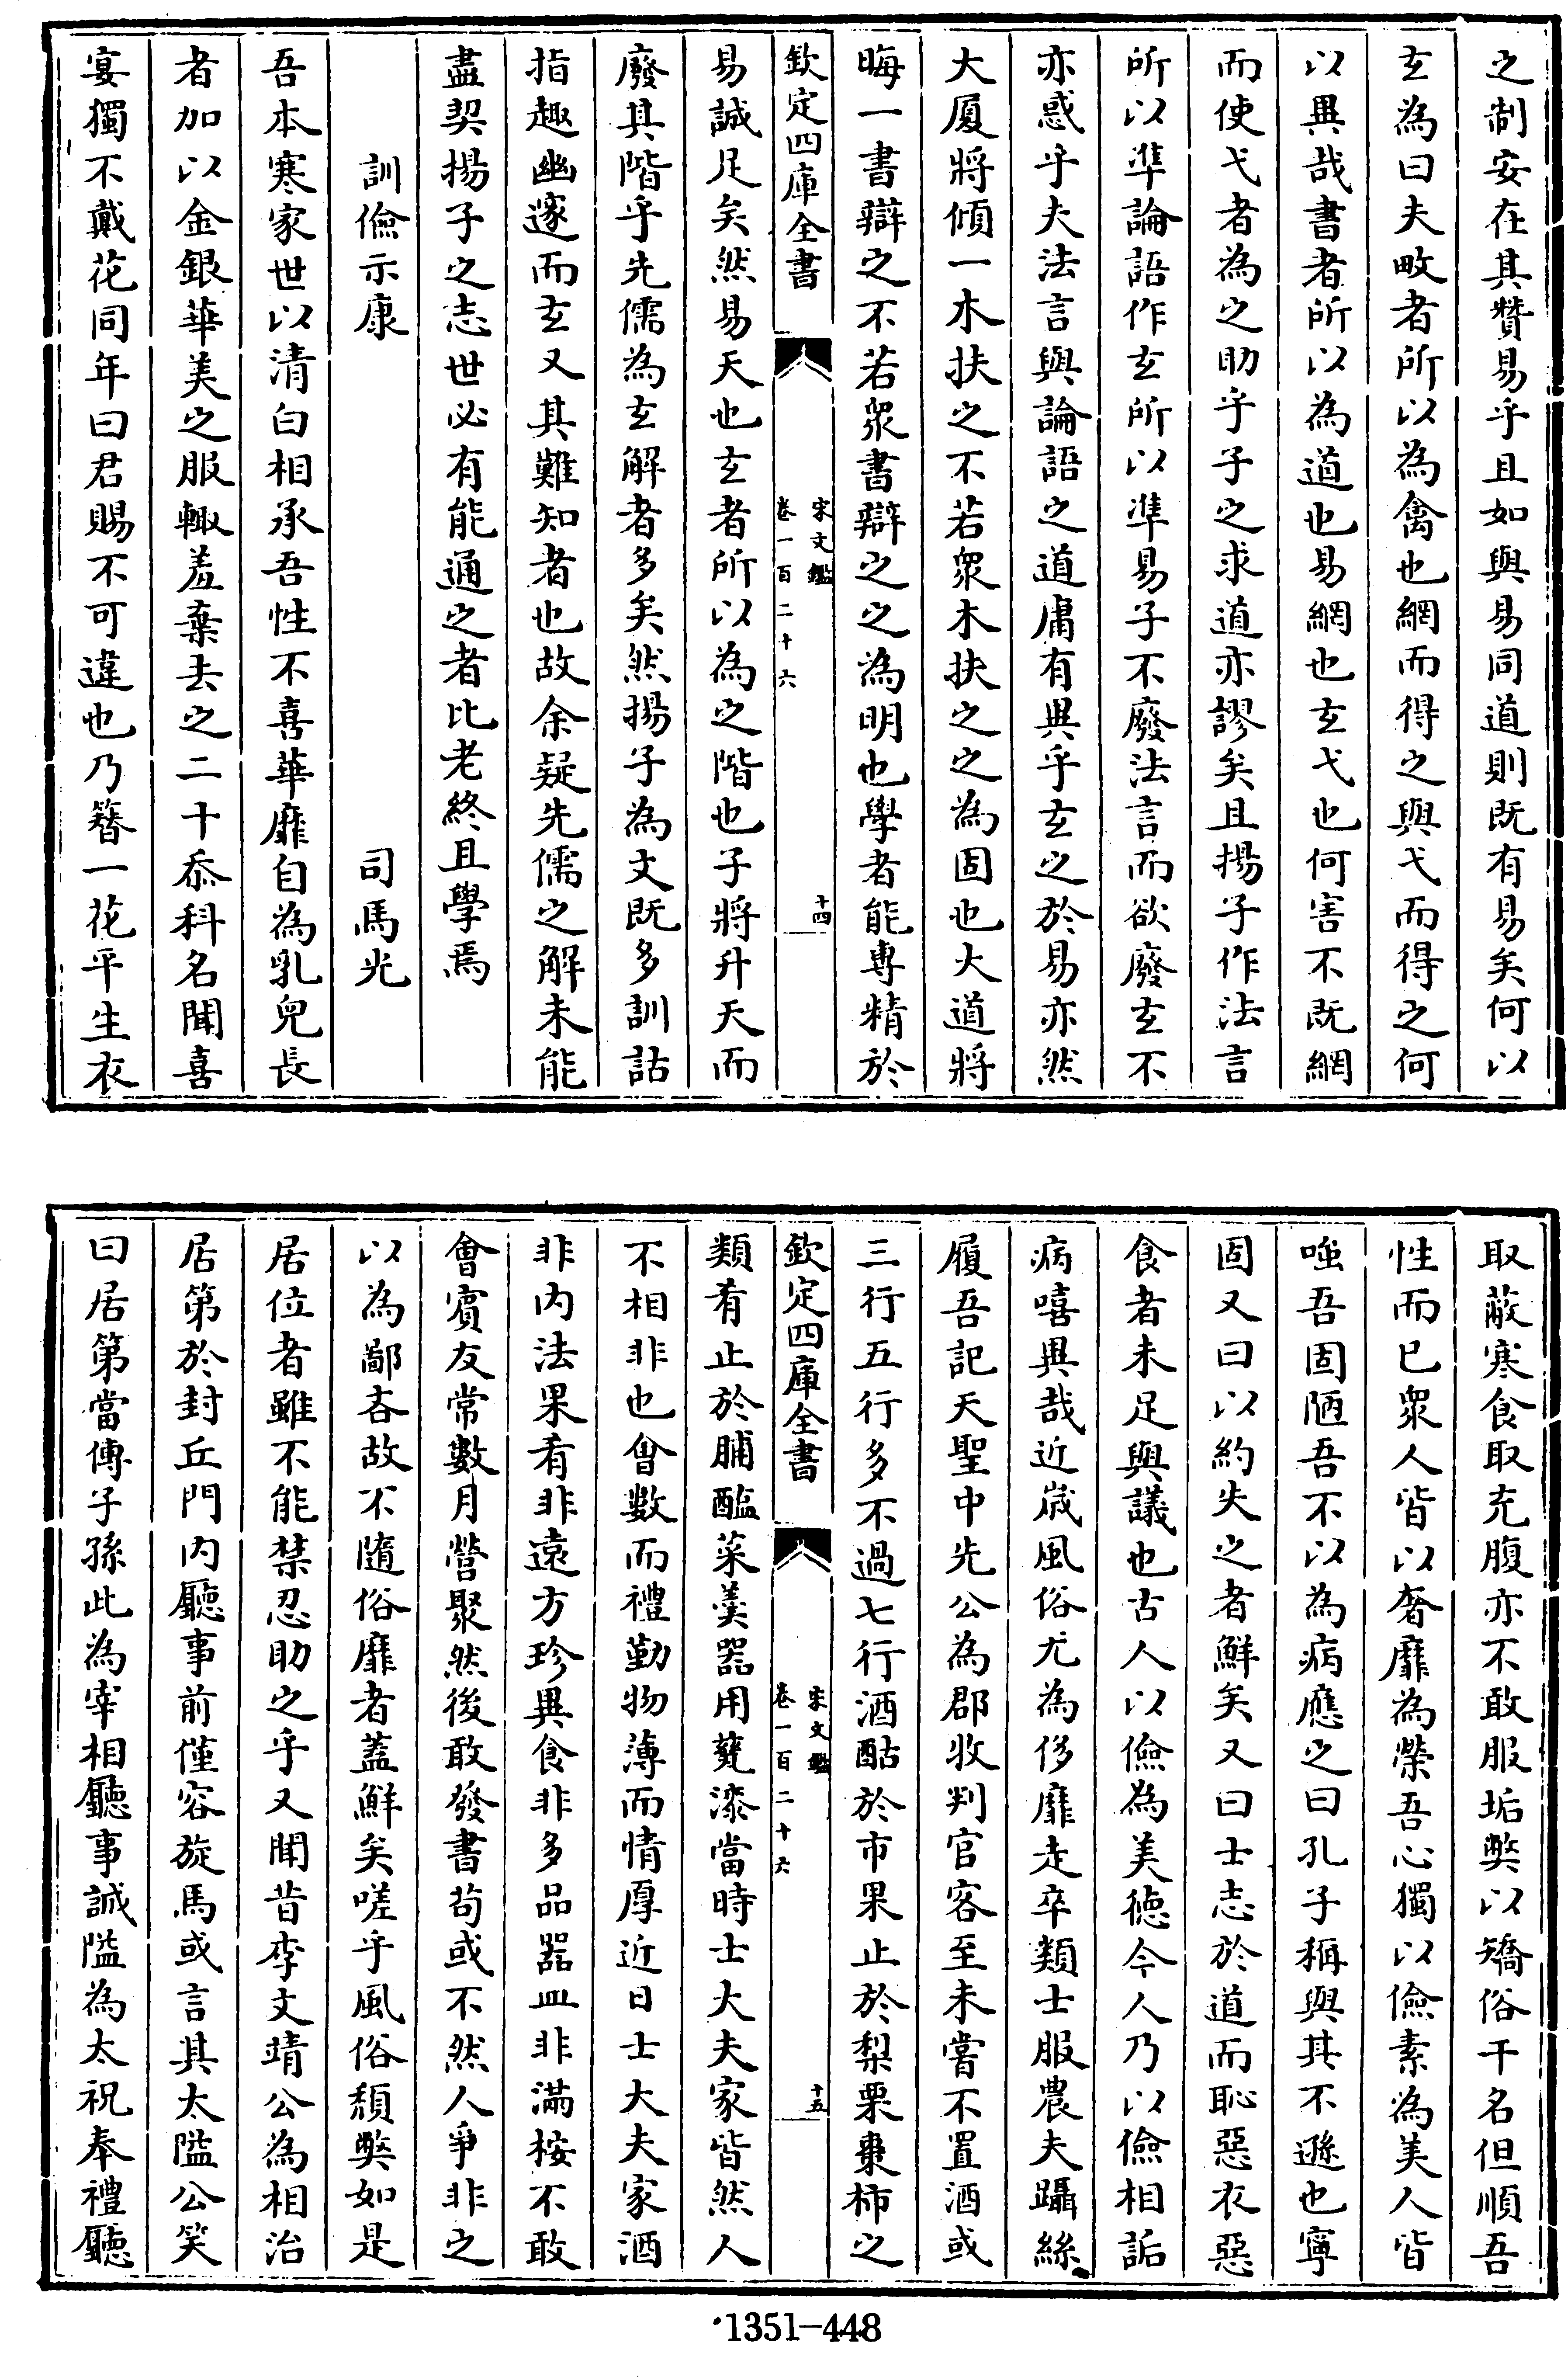 之制安在其贊易乎且如與易同道則既有易矣何以
玄為曰夫畋者所以為禽也網而得之與弋而得之何
以異哉書者所以為道也易網也玄弋也何害不既網
而使弋者為之助乎子之求道亦謬矣且揚子作法言
所以準論語作玄所以準易子不廢法言而欲廢玄不
亦惑乎夫法言與論語之道庸有異乎玄之於易亦然
大厦將傾一木扶之不若衆木扶之之為固也大道將
晦一書辯之不若衆書辯之之為明也學者能專精於
欽定四庫全書
宋文鑑
卷一百二十六
十四
易誠足矣然易天也玄者所以為之階也子將升天而
廢其階乎先儒為玄解者多矣然揚子為文既多訓詁
指趣幽邃而玄又其難知者也故余疑先儒之解未能
盡契揚子之志世必有能通之者比老終且學焉
訓儉示康
司馬光
吾本寒家世以清白相承吾性不喜華靡自為乳兒長
者加以金銀華美之服輙羞棄去之二十忝科名聞喜
宴獨不戴花同年曰君賜不可違也乃簪一花平生衣
取蔽寒食取充腹亦不敢服垢弊以矯俗干名但順吾
性而已衆人皆以奢靡為榮吾心獨以儉素為美人皆
嗤吾固陋吾不以為病應之曰孔子稱與其不遜也寧
固又曰以約失之者鮮矣又曰士志於道而恥惡衣惡
食者未足與議也古人以儉為美徳今人乃以儉相詬
病嘻異哉近嵗風俗尤為侈靡走卒類士服農夫躡絲
履吾記天聖中先公為郡牧判官客至未嘗不置酒或
三行五行多不過七行酒酤於市果止於梨栗棗柿之
欽定四庫全書
宋文鑑
卷一百二十六
十五
類肴止於脯醢菜羮器用甆漆當時士大夫家皆然人
不相非也會數而禮勤物薄而情厚近日士大夫家酒
非内法果肴非逺方珍異食非多品器皿非滿桉不敢
會賓友常數月營聚然後敢發書茍或不然人爭非之
以為鄙吝故不隨俗靡者蓋鮮矣嗟乎風俗頽弊如是
居位者雖不能禁忍助之乎又聞昔李文靖公為相治
居第於封丘門内廳事前僅容旋馬或言其太隘公笑
曰居第當傳子孫此為宰相廳事誠隘為太祝奉禮廳
1351-448